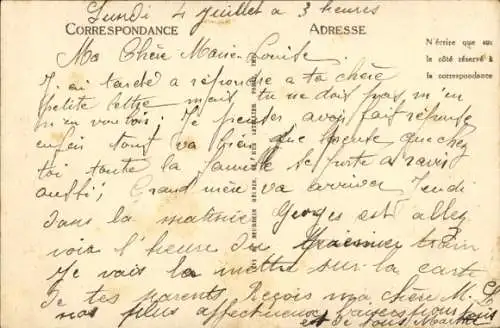 Lundi 4 juillet a 3 heures
CORRESPONDANCE
ADRESSE
N'écrire que sur
le côté réservé à
la correspondance
Ma Chère Marie-Louise
J'ai tardé a répondre a ta chère
petite lettre mais tu ne dois pas m'en
m'en vouloir; Je avoir fait réponse
enfin tout va bien que chez
toi toute la famille se porte a ravir
aussi; Grand mère va arriver Jeudi
dans la matinée Georges est allez
voir l'heure du train
Je vais la mettre sur la carte
de tes parents. Reçois ma chère M. L.
nos plus affectueux